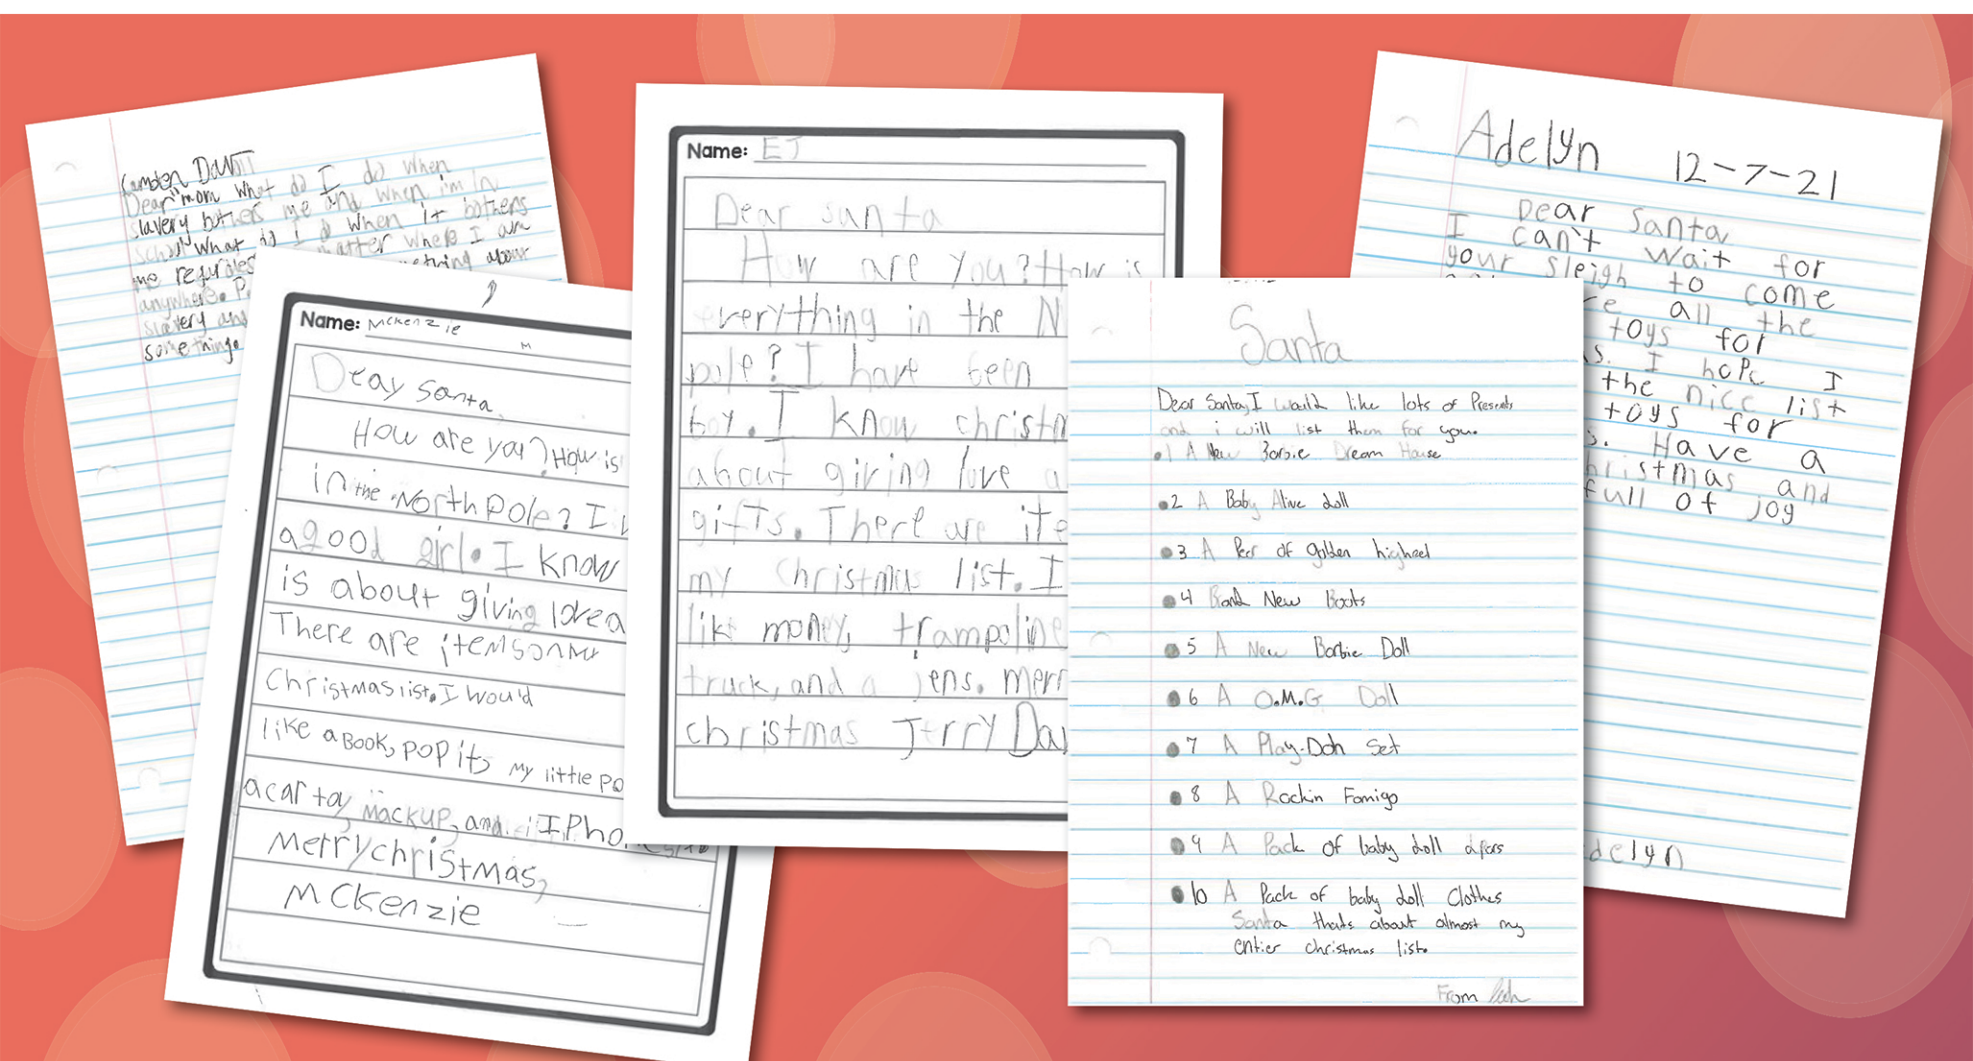 Camden
Dear mom what do I do when
slavery bothers me and when i'm in
school what do I do when it bothers
me regardless matter where I am
anywhere. P
slavery and
something.
Name: Mckenzie
Dear Santa,
How are you? How is
in the North Pole? I
a good girl. I know
is about giving love a
There are items on my
Christmas list. I would
like a Book, pop it, my little po
a car toy, mackup, and IPho
merry christmas,
mckenzie
Name: EJ
Dear santa
How are you? How is
everything in the N
pole? I have been
boy. I know christm
about giving love a
gifts. There are ite
my Christmas list. I
like money, trampoline
truck, and a jens. merr
christmas Jerry Dav
Santa
Dear Santa, I would like lots of Presents
and i will list them for you.
1 A New Barbie Dream House
2 A Baby Alive doll
3 A Peer of golden highheel
4 Brand New Boots
5 A New Barbie Doll
6 A O.M.G Doll
7 A Play-Doh Set
8 A Rockin Fomigo
9 A Pack of baby doll
10 A Pack of baby doll Clothes
Santa thats about almost my
entier christmas list.
From
Adelyn 12-7-21
Dear Santa
I can't wait for
your sleigh to come
re all the
toys for
s. I hope I
the nice list
toys for
s. Have a
hristmas and
full of joy
delyn